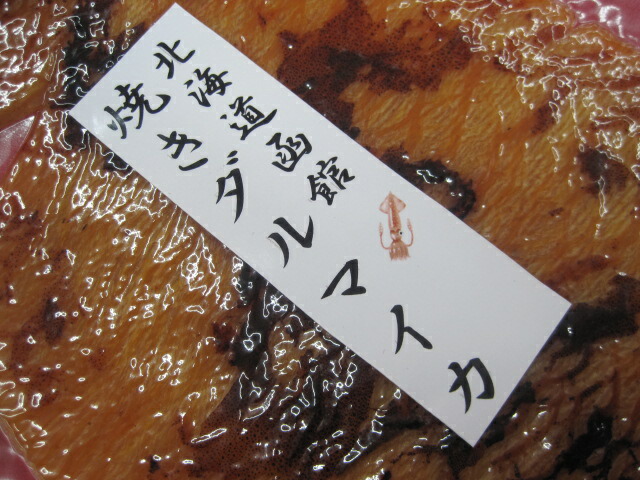 北海道函館
焼きダルマイカ